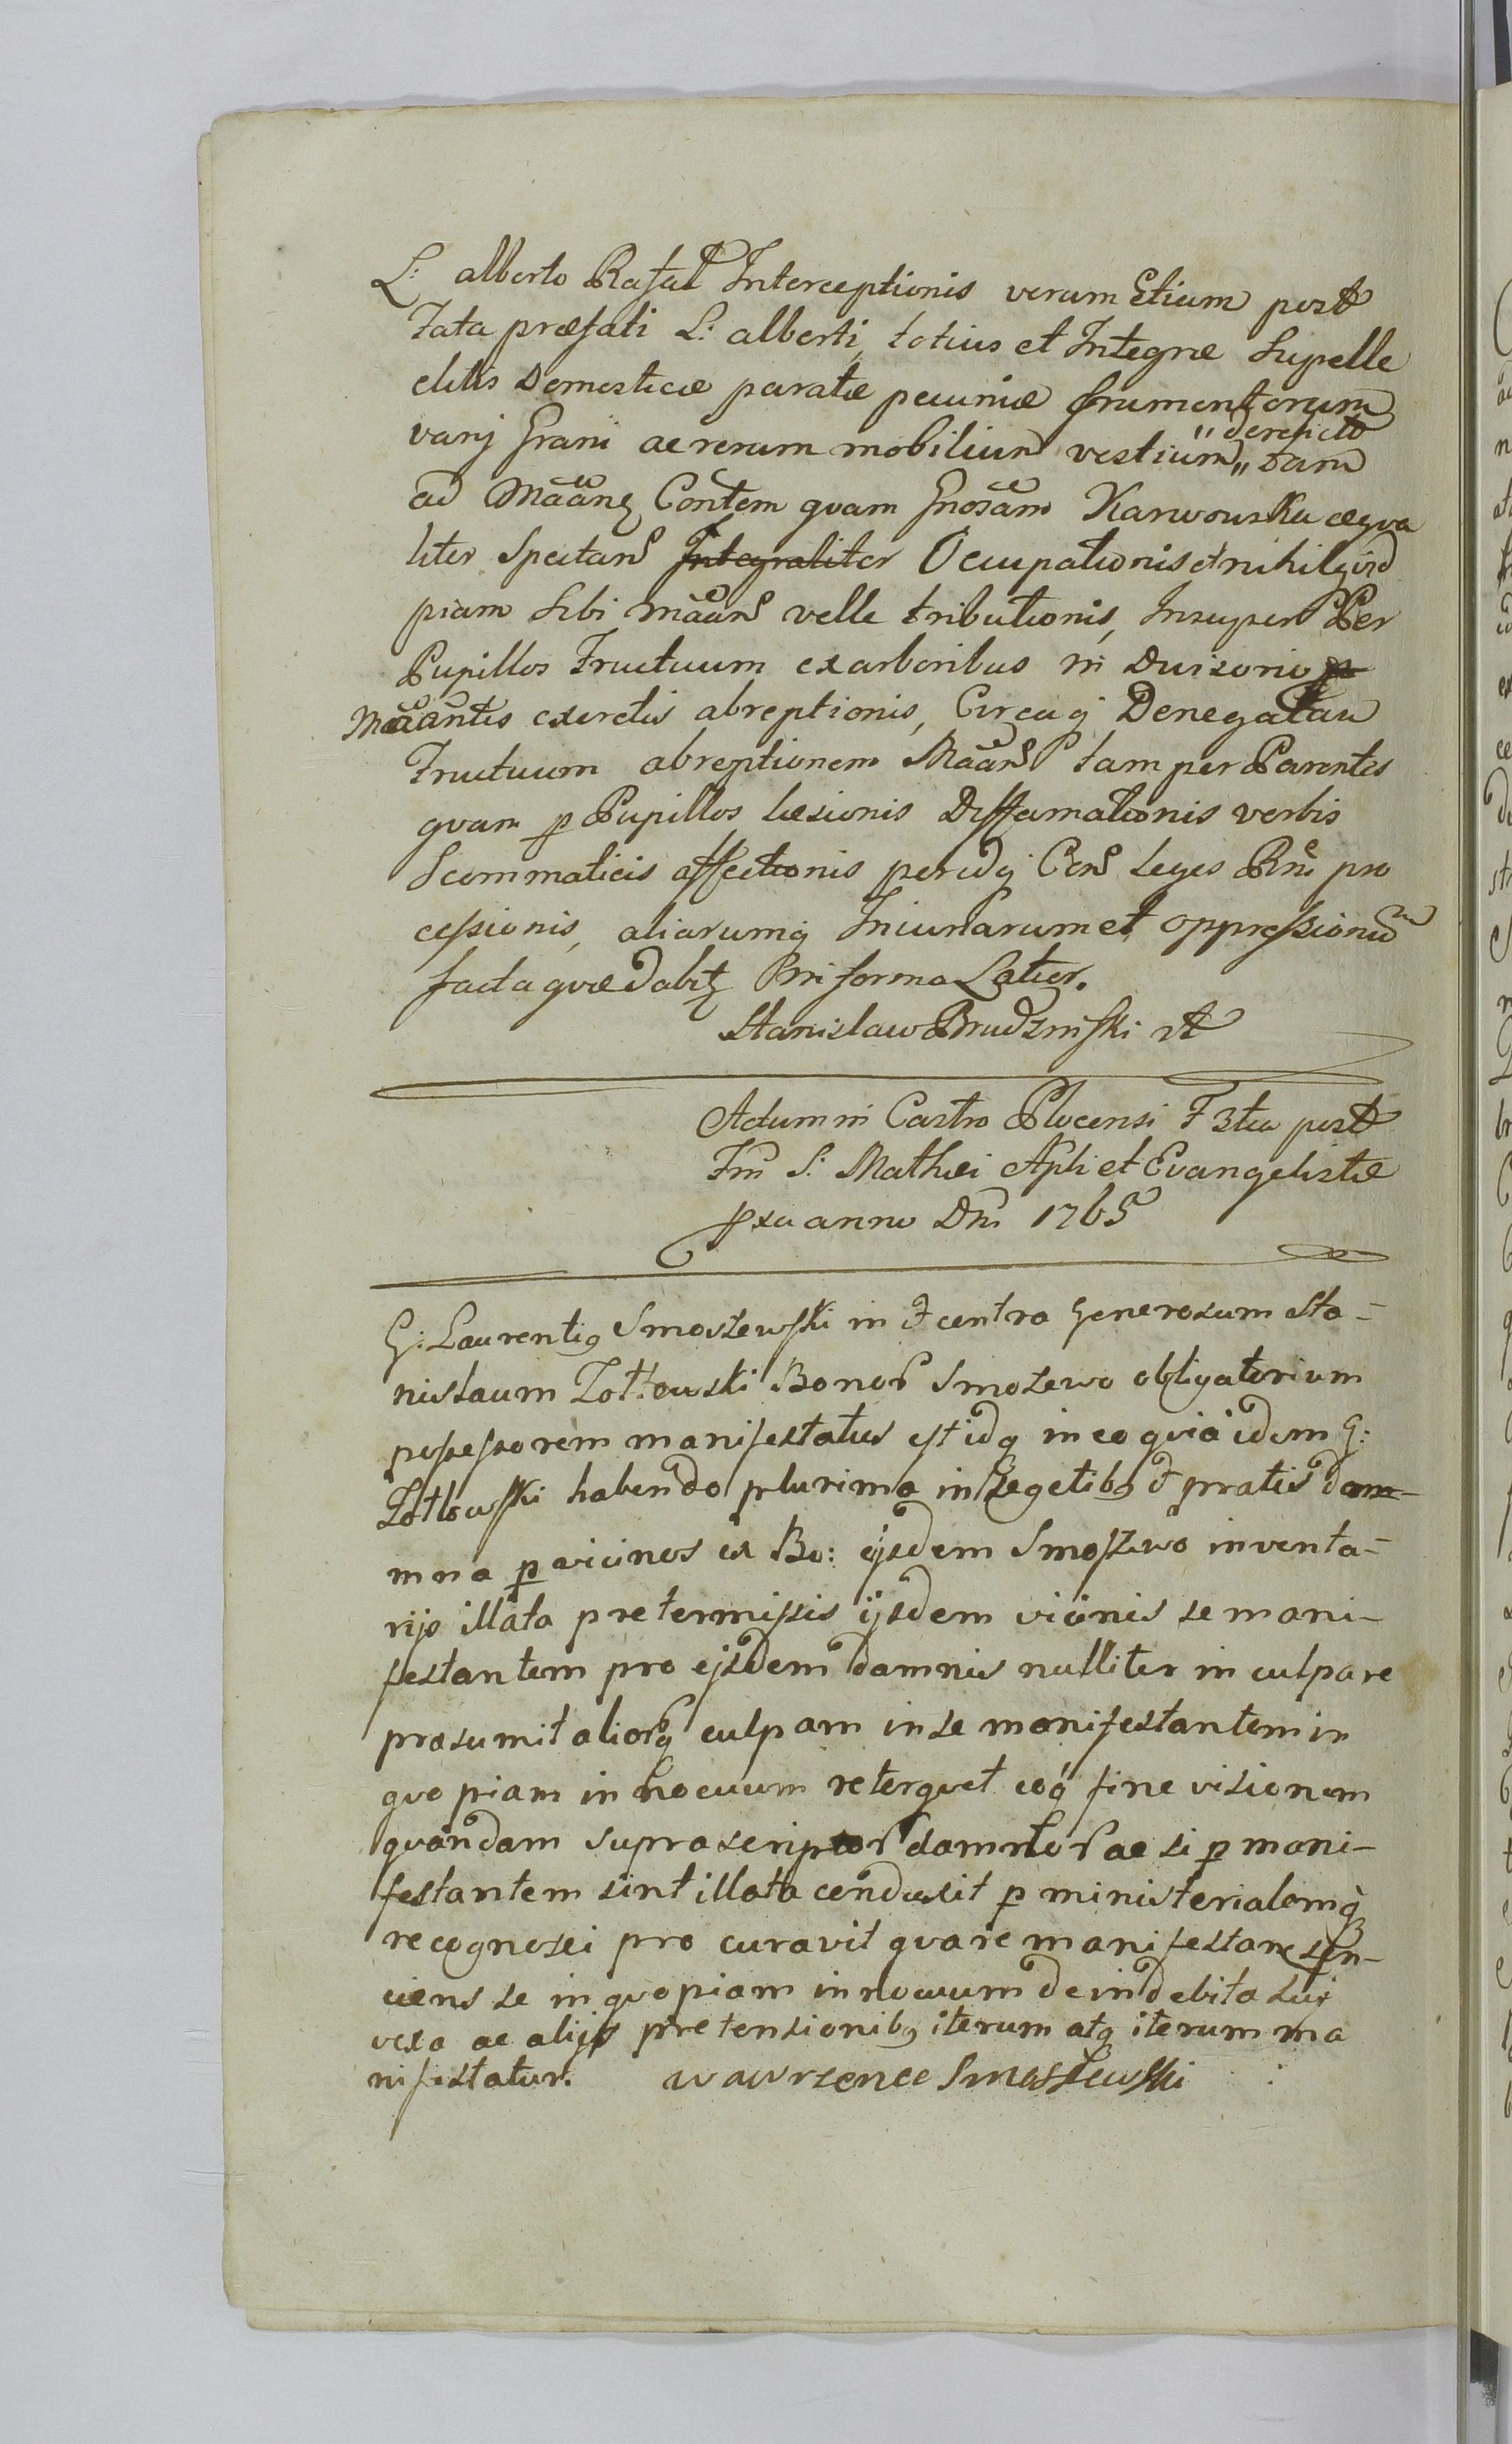 L: alberto Rafal Interceptionis verum Etium post
Fata præfati L: alberti, totius et Integræ Supelle
ctilis Domesticæ paratæ pecuniæ frumentorum
varij Grani ac rerum mobilium vestium,, tam
,, derelicto
ad Māāng Contem quam Gnosam Karwouska æqva
liter Spectan Integraliter Occupationis et nihil qvid
piam Sibi māān velle tributionis, Insuper Per
Pupillos Fructuum ex arboribus in Duisorio p
Māāntis exiretis abreptionis, Circaq Denegatan
Fructuum abreptionem Māān tam per Parentes
qvam p Pupillos, læsionis Diffamationis verbis
Scommaticis affectionis per idq Cen Leges Rni pro
cessionis, aliarumq Iniuriarum et oppressionū
facta qvæ dabit in forma Latior.
Stanislaw Brudzinski

Actum in Castro Plocensi F 3tia post
Fm S: Mathæi Apli et Evangelistæ
pxu anno Dni 1765

G: Laurentiq Smoszewski in & centra Generosum Sta-
nislaum Zottowski Bonor Smozewo obligatorium
possessorem manifestatus est idq in eo qvia idem G:
Zottowski habendo plurima in segetibq & pratis dam-
mna p vicinos ex Bo: ejsdem Smoszewo inventa-
rijs illata pretermissis ijsdem vicinis se mani-
festantem pro ejsdem damnis nulliter inculpare
prasumit aliorq culpam in se manifestantem in
qvo piam innocuum reterqvet eoq fine visionem
qvandam suprascriptor damnor ac si p mani-
festantem sint illata condusit p ministerialemq
recognosci pro curavit qvare manifestans
ciens se in qvopiam innocuum de indebita sui
vexa ac alijs pretensionibq iterum atq iterum ma
nifestatur. wawrzenec Smoszewski